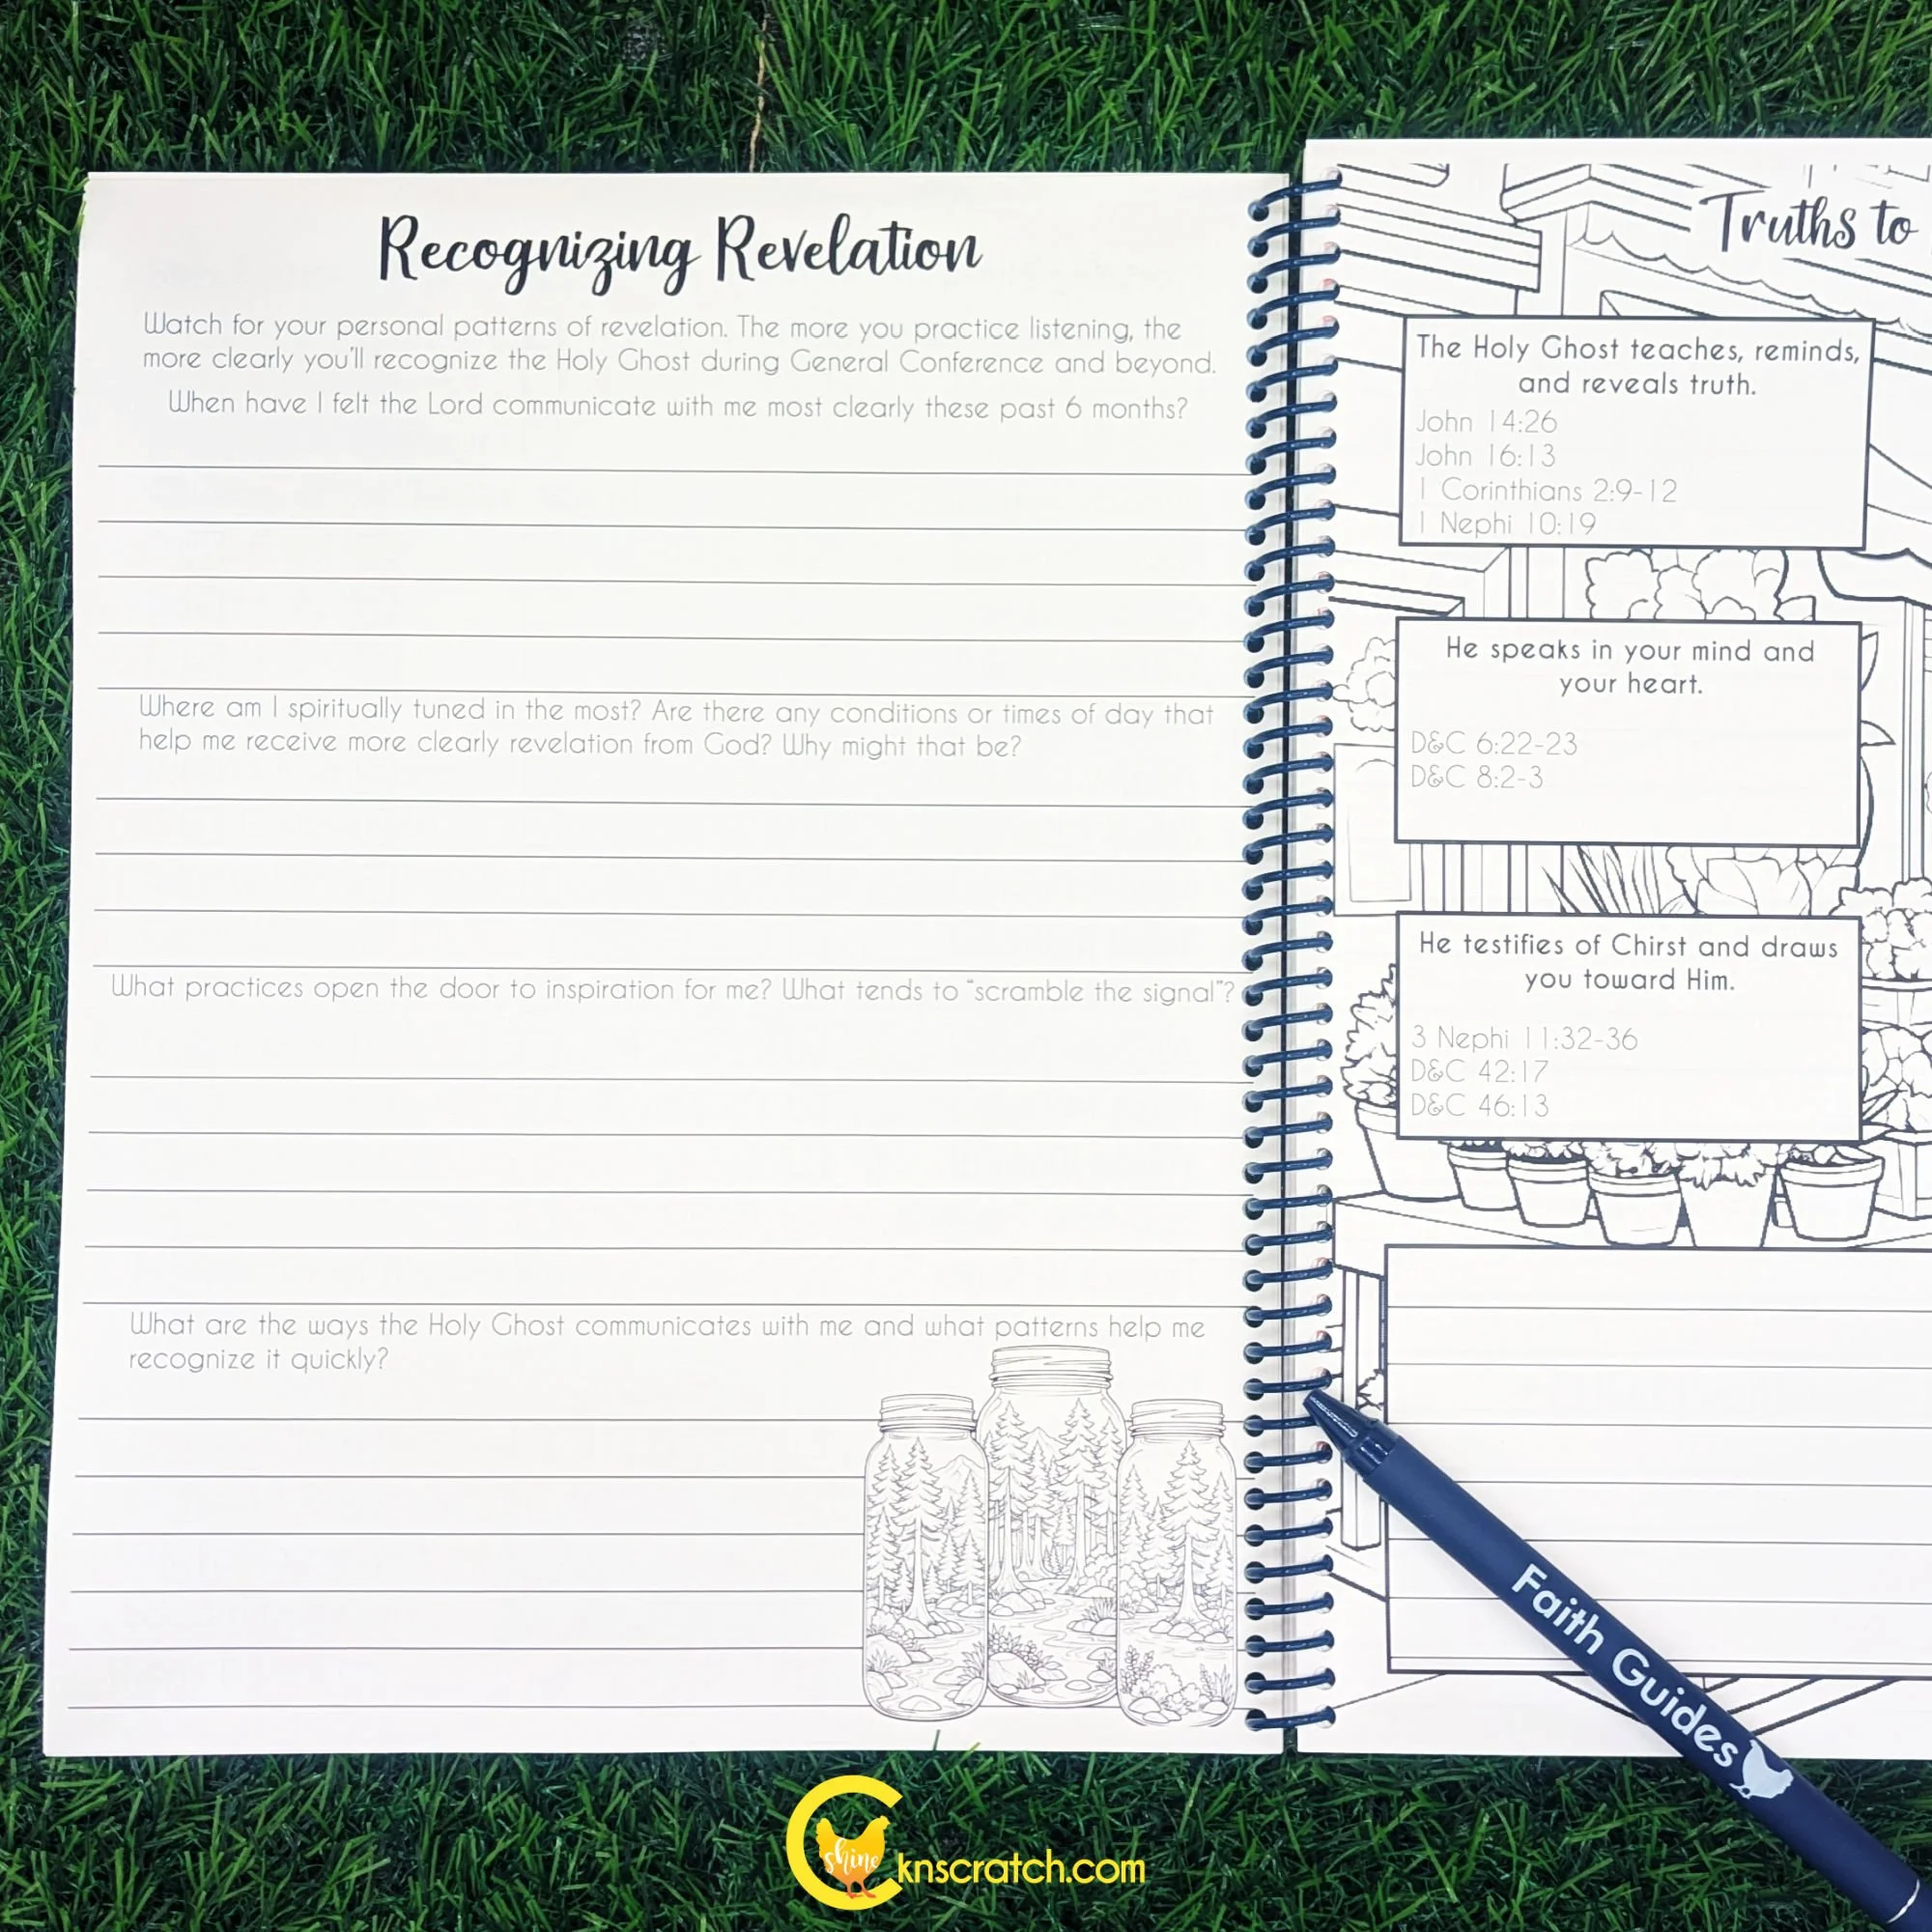 Recognizing Revelation
Watch for your personal patterns of revelation. The more you practice listening, the
more clearly you'll recognize the Holy Ghost during General Conference and beyond.
When have I felt the Lord communicate with me most clearly these past 6 months?
Where am I spiritually tuned in the most? Are there any conditions or times of day that
help me receive more clearly revelation from God? Why might that be?
What practices open the door to inspiration for me? What tends to "scramble the signal"?
What are the ways the Holy Ghost communicates with me and what patterns help me
recognize it quickly?
Truths to
The Holy Ghost teaches, reminds,
and reveals truth.
John 14:26
John 16:13
1 Corinthians 2:9-12
1 Nephi 10:19
He speaks in your mind and
your heart.
D&C 6:22-23
D&C 8:2-3
He testifies of Chirst and draws
you toward Him.
3 Nephi 11:32-36
D&C 42:17
D&C 46:13
Faith Guides
C
shine
knscratch.com